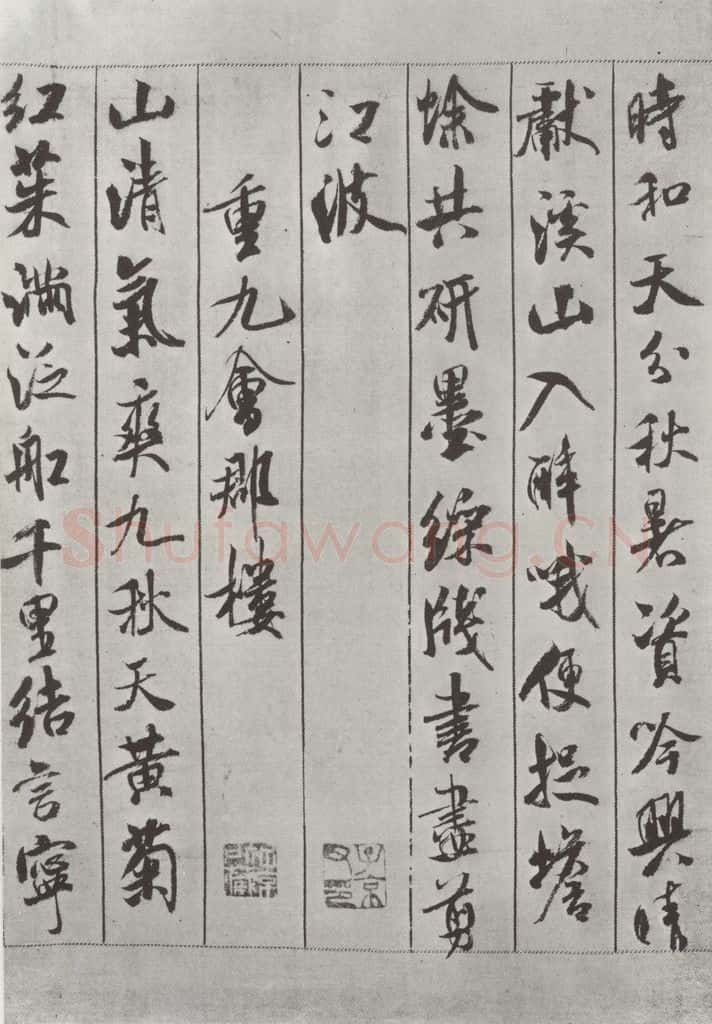 時和天分秋暑資吟興晴
獻溪山入醉哦便捉蟾
蜍共研墨綵牋書盡剪
江波
重九會郡樓
山清氣爽九秋天黃菊
紅茱滿泛船千里結言寧
Shufawang.CN